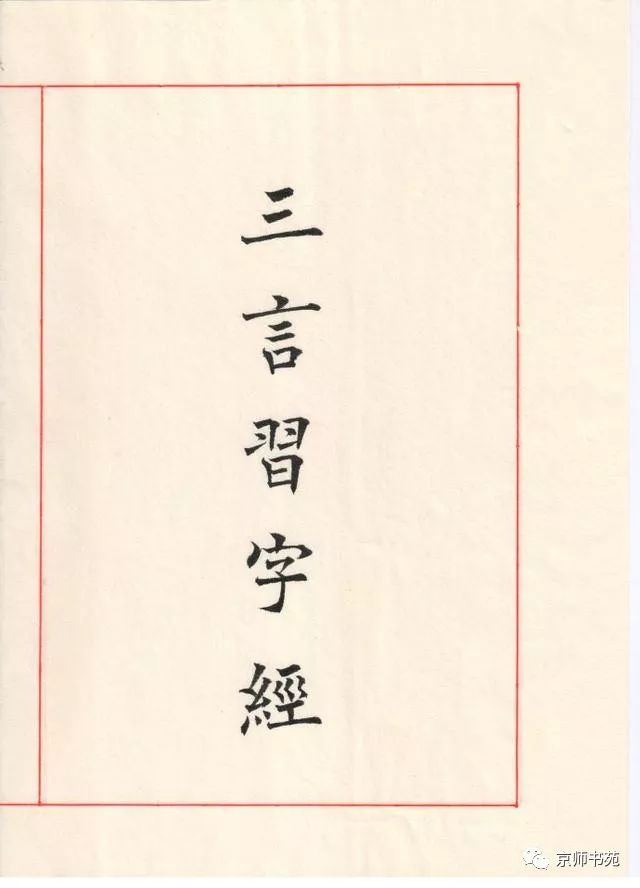 三言習字經
京师书苑